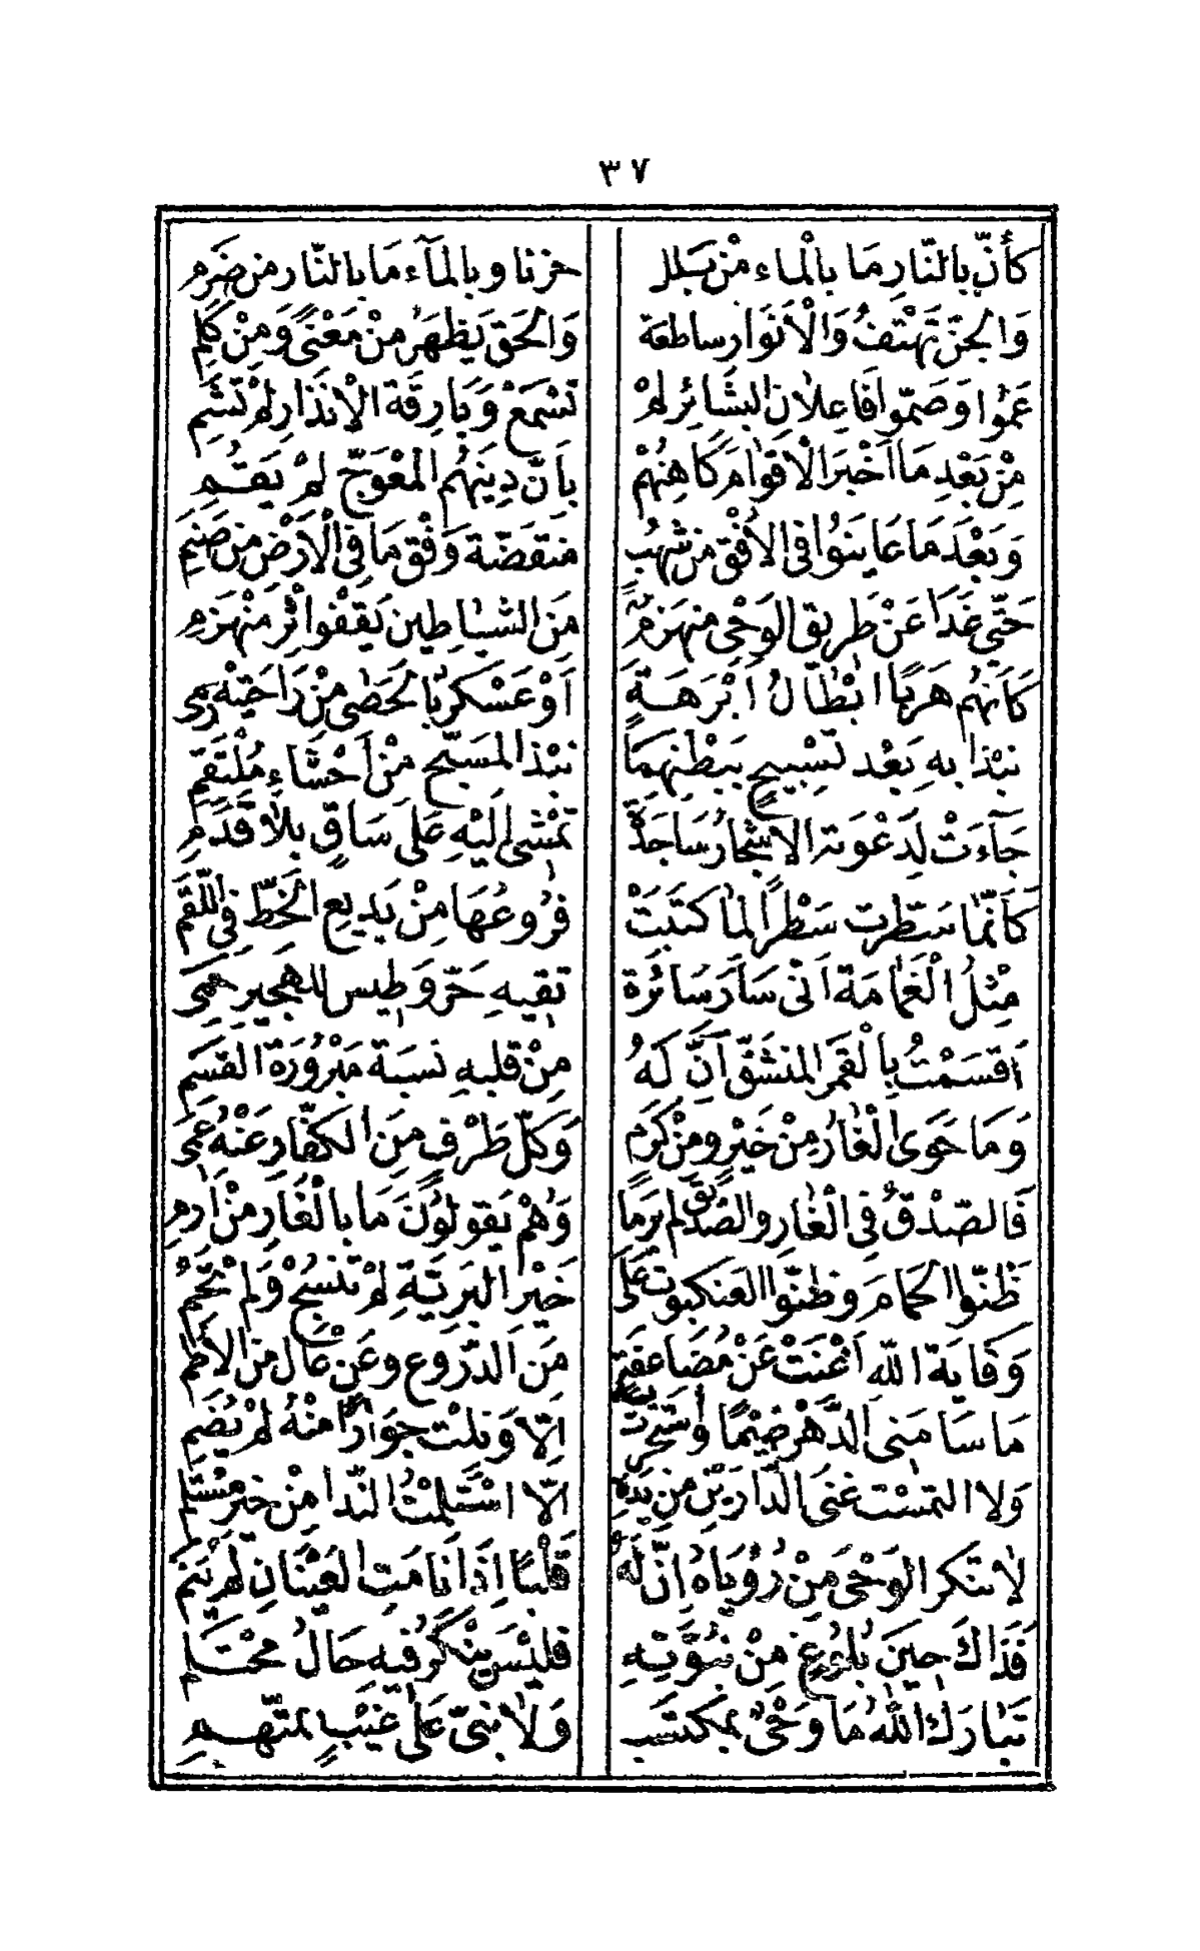 ٣٧
كَأَنَّ بِالنَّارِ مَا بِالْمَاءِ مْنْ بَلَلٍ حزنا وبالمآء مَا بالنّار من ضَرَمِ
وَالجنّ تَهْتِفُ وَالْاَنوَار ساطعة وَالحَق يَظهَرُ منْ مَعْنًى وَمِنْ كَلِمِ
عَمُوا وَصَمّوا فَاعِلَان البشَائِر لمْ تسْمَعْ وَبَارِقَة الْاِنذَارِ لمْ تشَمِ
مِنْ بَعْدِ مَا اَخْبَرَ الْاَقْوَامَ كَاهِنُهُمْ بِاَنَّ دِينَهُم المعْوَجّ لمْ يَقُمِ
وَبَعْدَ مَا عَاينَوُا فى الاُفْق من شهُبٍ منقضّة وَفْق مَا فِى الْاَرْضِ من صَنَمِ
حَتّى غَدَا عَنْ طَرِيق الوَحْى منهَزمٌ مِنَ الشيَاطِين يَقفْوا اثْر مُنْهَزمِ
كَاَنهُم هَرَبًا ابْطَالُ اَبْرَهَةٍ اَوْ عَسْكرٌ بالحَصٰى مِنْ رَاحَتيْهِ رُمِى
نبْذا بهِ بَعْد تَسْبِيحٍ بَبَطْنهِمَا نبْذ المسَبّحِ مْنْ اَحْشَاءِ مُلْتَقِمِ
جَآءَتْ لِدَعْوَتهِ الاشجَارُ سَاجدَةً تمْشى اِليْهِ عَلَى سَاقٍ بِلَا قَدَمِ
كَاَنَّمَا سَطَرت سَطْرًا لِمَا كتَبَتْ فرُوعُهَا مِنْ بَدِيعِ الْخَطّ فِى اللَّقَمِ
مِثْلُ الْغَمَامَةَ اَنّى سَارَ سَائرَة تقيهِ حَرّ وَطِيسٍ للهَجيرِ حَمِى
اَقسَمْتُ بِالْقمَرِ المنشَقّ اَنَّ لَهُ مِنْ قلبهِ نسبَة مَبْرُورَة القسَمِ
وَمَا حَوَى الْغَارُ مِنْ خَيْرٍ ومنْ كرَمِ وَكلّ طَرْفٍ مِنَ الكفّار عَنْهُ عَمِى
فَالصّدْقُ فِى الْغَارِ والصّدّيق لم يَرمَا وَهُمْ يَقولوُنَ مَا بالْغَارِ منْ اَرِمِ
ظَنّوا الحمَامَ وظنّوا العَنكبوت عَلَى خَيْرِ البَرِيّةِ لمْ تنسُجْ وَلَمْ تَحُمِ
وَقَايَة اللّٰهِ اَغْنَتْ عَنْ مُضَاعَفَةٍ مِنَ الدّرُوعِ وعَنْ عَال منَ الاُطُمِ
مَا سَامَنى الدَّهْر ضَيْمًا وَاسْتَجَرْت بِهِ اِلّا وَنلْت جِوَارًا مْنْهُ لمْ يُضَمِ
وَلا التمسْت غنَى الدّارَيْنِ مِن يَدِهِ الّا اسْتَلمْتُ النّدا مِنْ خيْرِ مُسْتَلمِ
لَا تنكر الوَحْىَ مِنْ رُؤيَاهُ اِنّ لَهُ قَلْبًا اِذَا نَامَتِ العَيْنَانِ لمْ يَنَمِ
فَذَاكَ حِينَ بُلوُغٍ مِنْ نبُوّتِهِ فليْسَ ينْكَرُ فيهِ حَالُ محْتَلمِ
تبَارَكَ اللّٰهُ مَا وَحْىٌ بمكتسَبٍ وَلَا نبىّ عَلَى غيْبٍ بمتّهَمِ